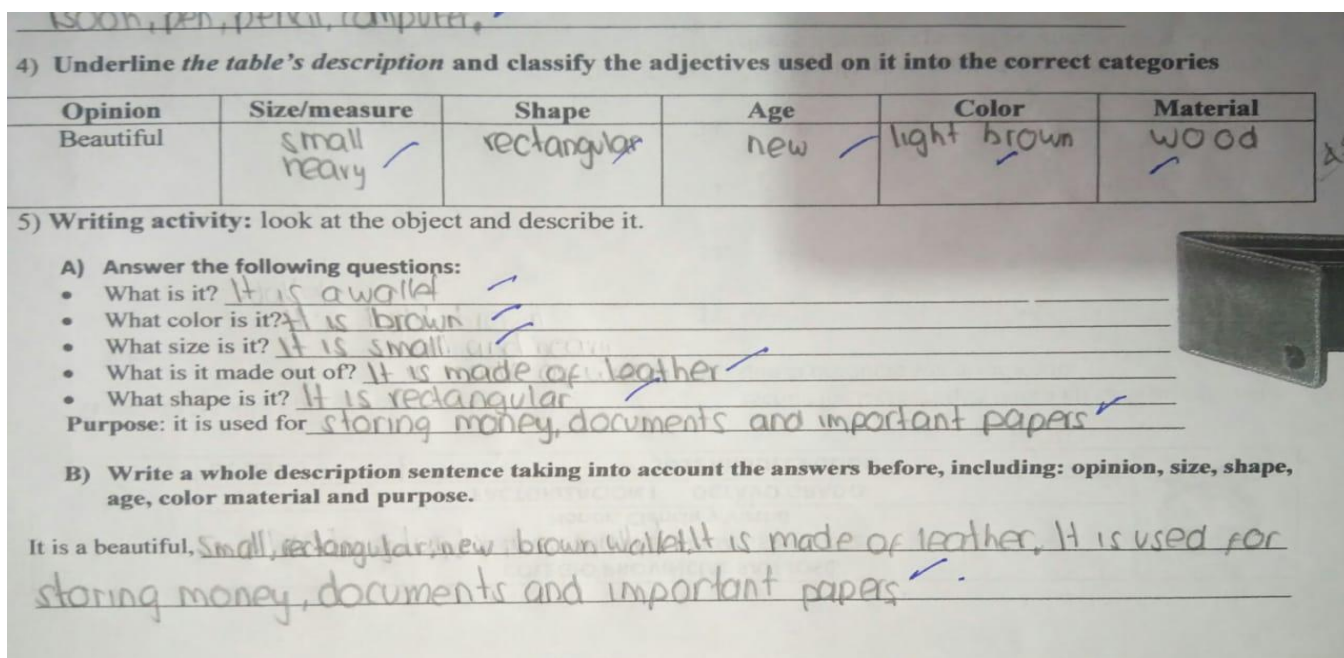 book, pen, pencil, computer.
4) Underline the table's description and classify the adjectives used on it into the correct categories
Opinion Size/measure Shape Age Color Material
Beautiful small rectangular new light brown wood
heavy
5) Writing activity: look at the object and describe it.
A) Answer the following questions:
• What is it? It is a wallet
• What color is it? It is brown
• What size is it? It is small
• What is it made out of? It is made of leather
• What shape is it? It is rectangular
Purpose: it is used for storing money, documents and important papers
B) Write a whole description sentence taking into account the answers before, including: opinion, size, shape,
age, color material and purpose.
It is a beautiful, small, rectangular, new brown wallet. It is made of leather. It is used for
storing money, documents and important papers.